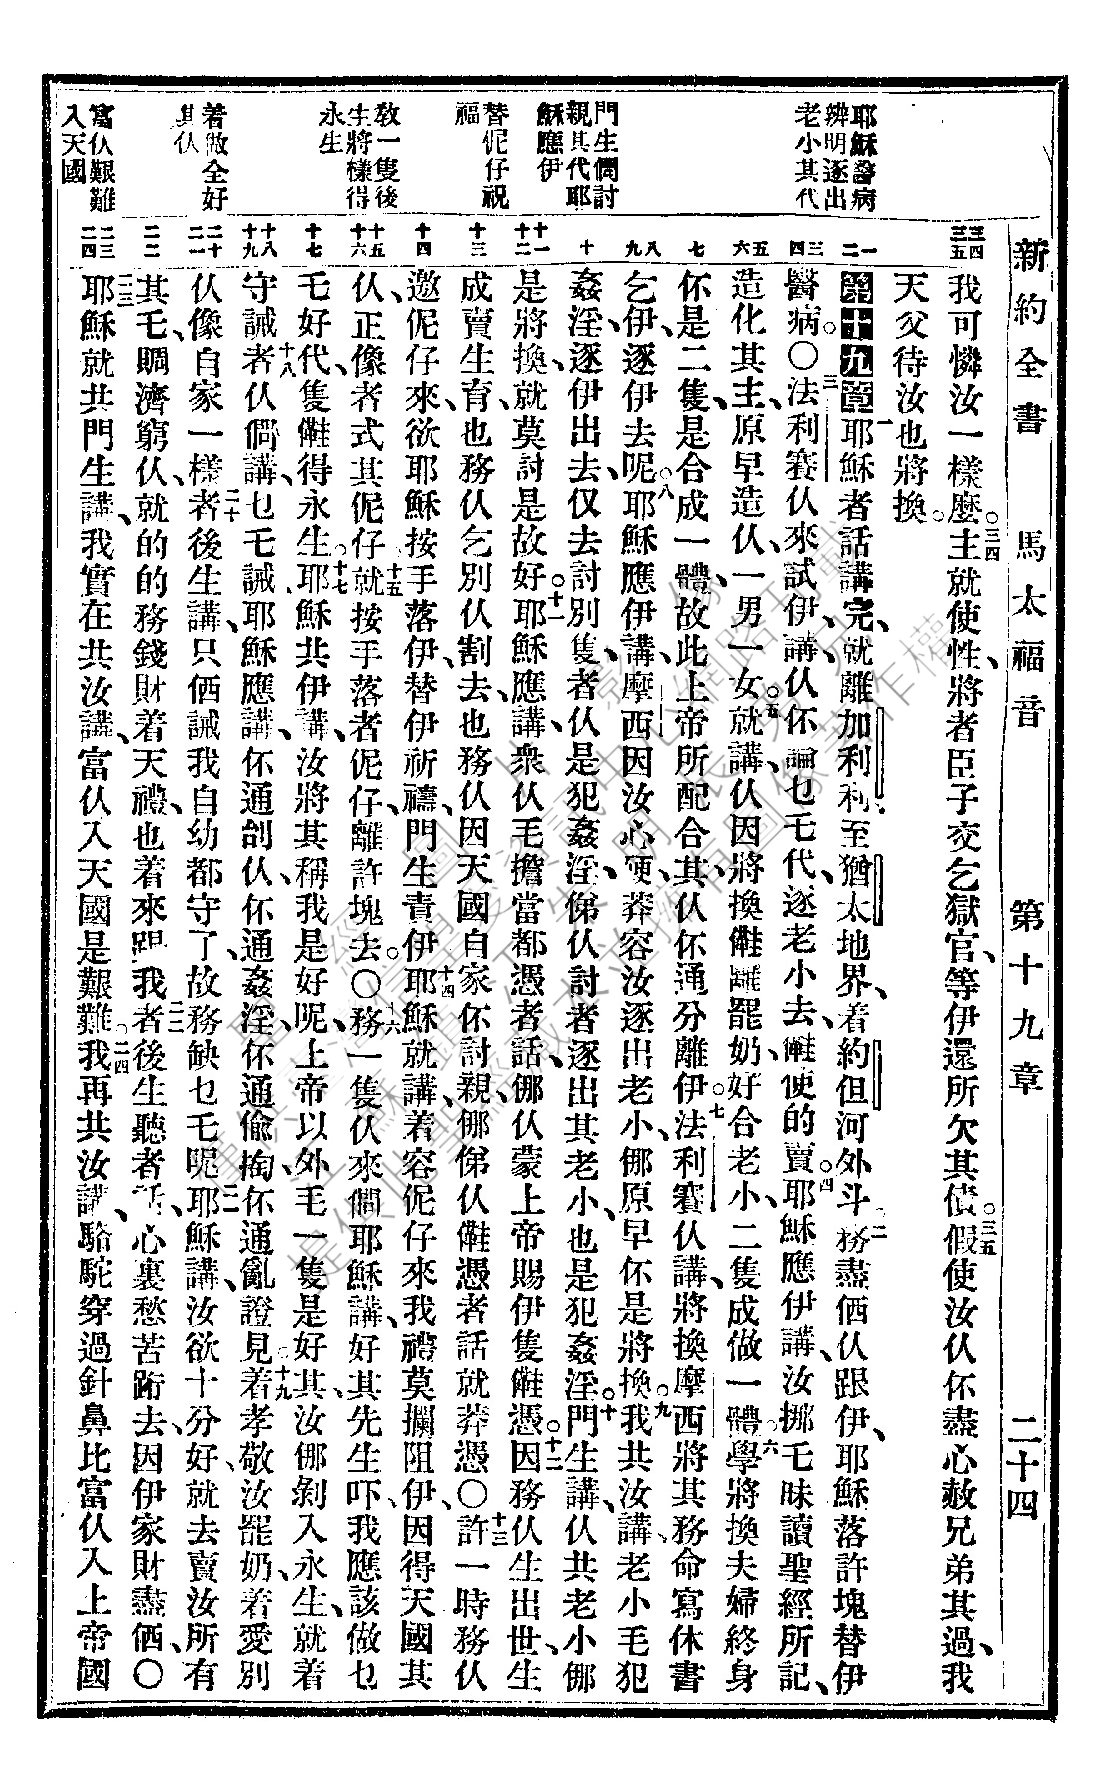 新約全書 馬太福音 第十九章 二十四
耶穌醫病
辨明逐出
老小其代
門生問討
親其代耶
穌應伊
替伲仔祝
福
教一隻後
生將樣得
永生
着做全好
其仈
富仈艱難
入天國
三四
三五
一
二
三
四
五
六
七
八
九
十
十一
十二
十三
十四
十五
十六
十七
十八
十九
二十
二一
二二
二三
二四
我可憐汝一樣麽。三四主就使性、將者臣子交乞獄官、等伊還所欠其債。三五假使汝仈伓盡心赦兄弟其過、我
天父待汝也將換。
第十九章一耶穌者話講完、就離加利利、至猶太地界、着約但河外斗、二務盡価仈跟伊、耶穌落許塊替伊
醫病。〇三法利賽仈來試伊、講、仈伓論乜乇代、逐老小去、㑚使的賣。四耶穌應伊講、汝挪乇昧讀聖經所記、
造化其主、原早造仈、一男一女。五就講、仈因將換㑚離罷奶、好合老小、二隻成做一體。六學將換夫婦終身
伓是二隻、是合成一體、故此上帝所配合其、仈伓通分離伊。七法利賽仈講、將換摩西將其務命寫休書
乞伊、逐伊去呢。八耶穌應伊講、摩西因汝心硬、莽容汝逐出老小、㑚原早伓是將換。九我共汝講、老小毛犯
姦淫、逐伊出去、仅去討別隻、者仈是犯姦淫、俤仈討者逐出其老小、也是犯姦淫。十門生講、仈共老小㑚
是將換、就莫討是故好。十一耶穌應講、衆仈毛擔當都憑者話、㑚仈蒙上帝賜伊隻㑚憑。十二因務仈生出世、生
成賣生育、也務仈乞別仈割去、也務仈因天國自家伓討親、㑚俤仈㑚憑者話就莽憑。〇十三許一時務仈
邀伲仔來、欲耶穌按手落伊、替伊祈禱、門生責伊、十四耶穌就講、着容伲仔來我禮、莫攔阻伊、因得天國其
仈、正像者式其伲仔、十五就按手落者伲仔、離許塊去。〇十六務一隻仈來問耶穌講、好其先生吓、我應該做乜
乇好代、隻㑚得永生。十七耶穌共伊講、汝將其稱我是好呢、上帝以外毛一隻是好其、汝㑚剁入永生、就着
守誡、十八者仈問講、乜乇誡、耶穌應講、伓通刣仈、伓通姦淫、伓通偷掏、伓通亂證見、十九着孝敬汝罷奶、着愛別
仈像自家一樣、二十者後生講、只価誡我自幼都守了、故務缺乜乇呢、二一耶穌講、汝欲十分好、就去賣汝所有
其乇、賙濟窮仈、就的的務錢財着天禮、也着來跟我、二二者後生聽者話、心裏愁苦跻去、因伊家財盡価。〇
二三耶穌就共門生講、我實在共汝講、富仈入天國是艱難。二四我再共汝講、駱駝穿過針鼻、比富仈入上帝國